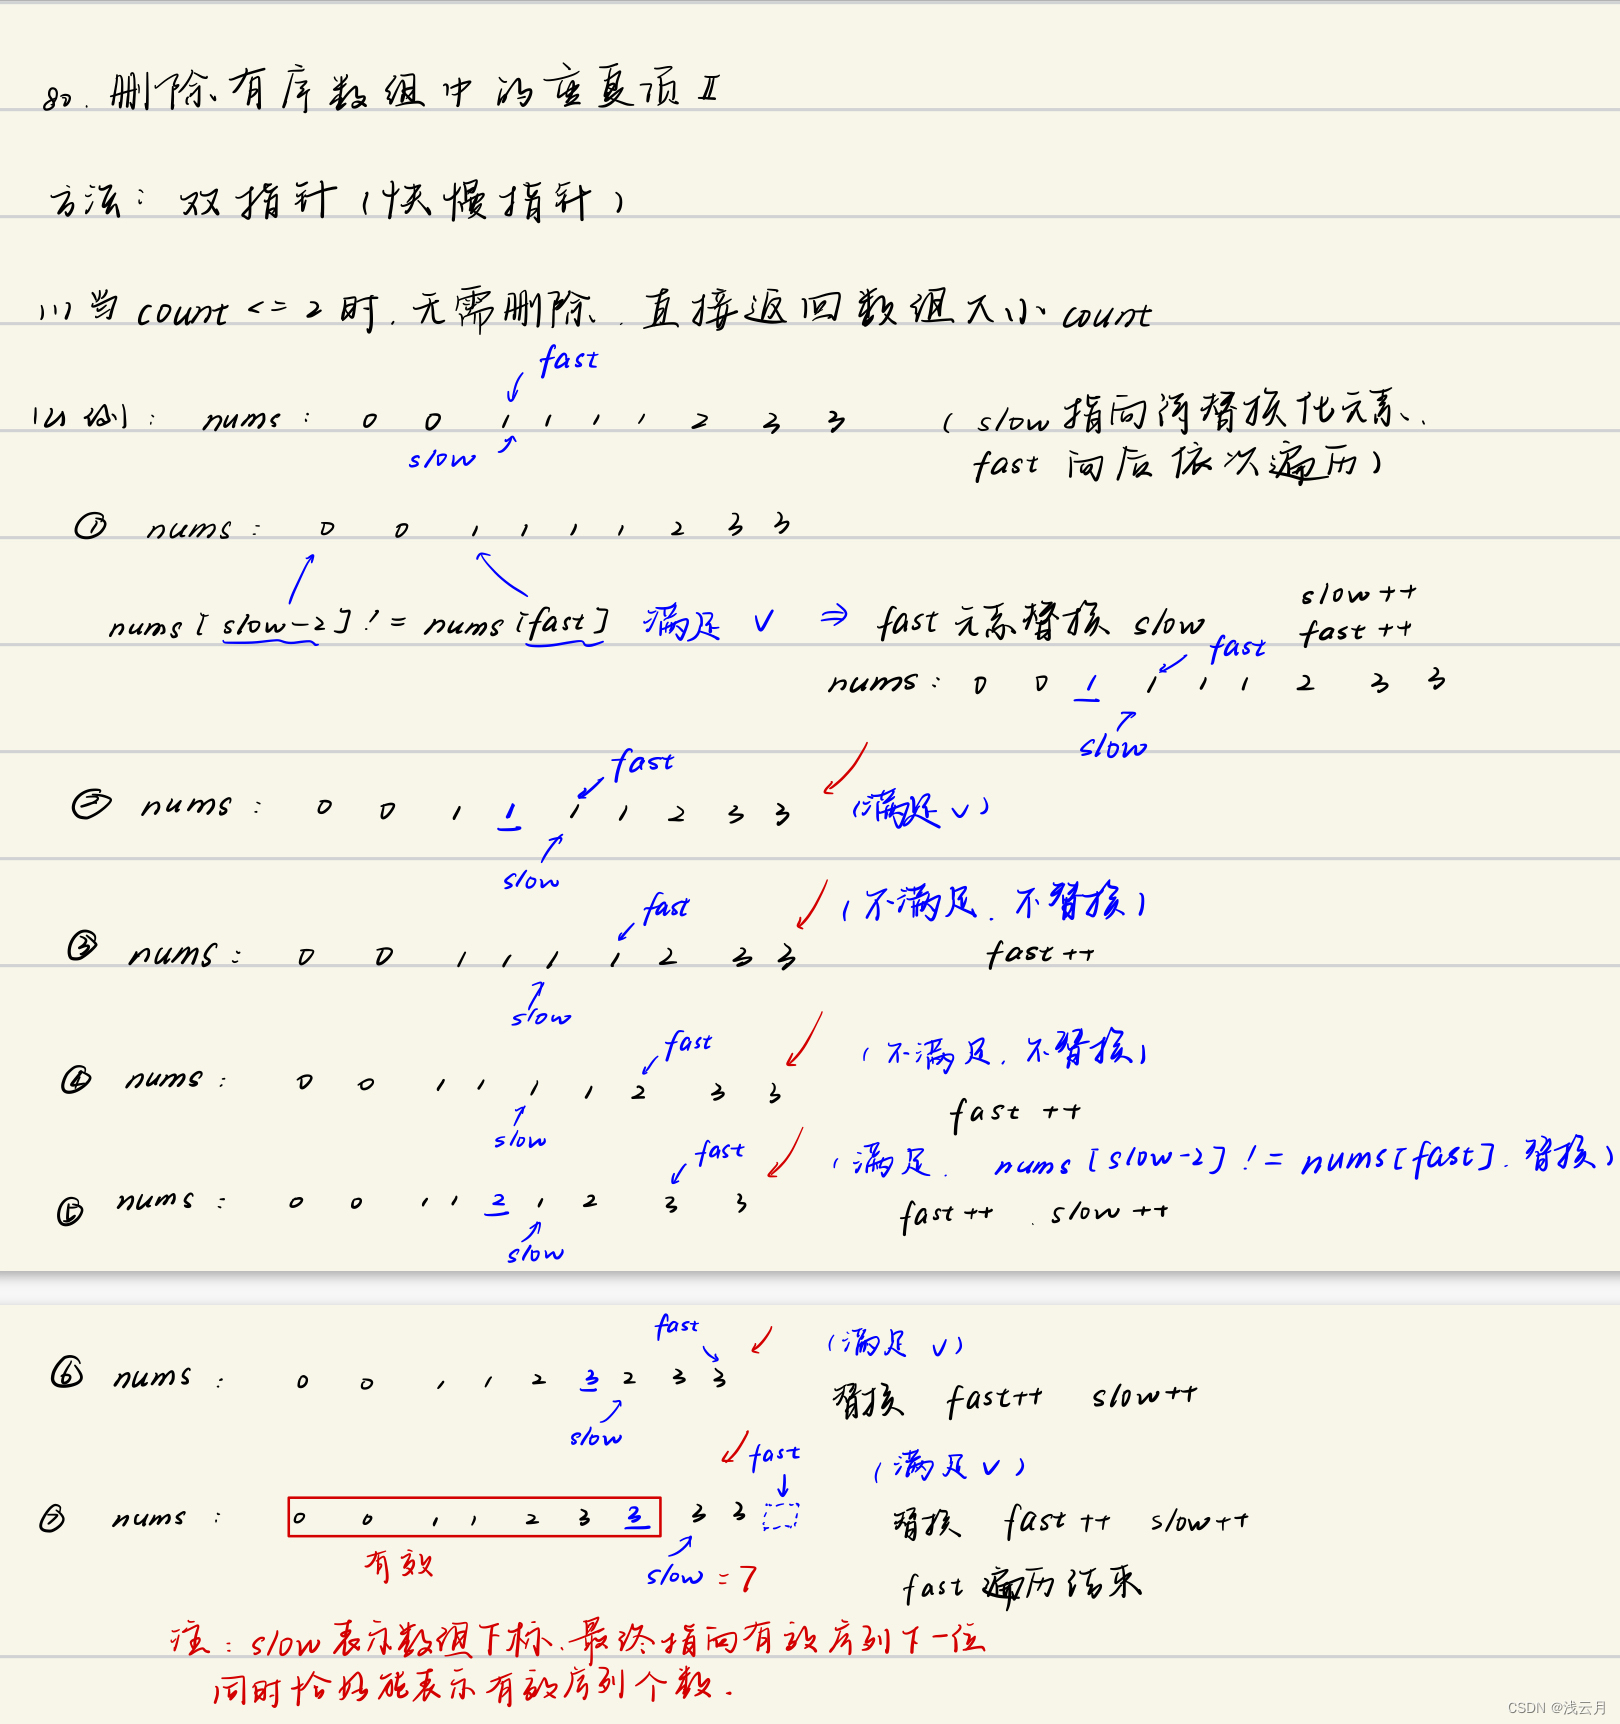 80. 删除有序数组中的重复项 II
方法: 双指针 (快慢指针)
(1) 当 count <= 2 时. 无需删除. 直接返回数组大小 count
fast
(2) 例: nums: 0 0 1 1 1 1 2 3 3 (slow 指向待替换化元素.
slow fast 向后依次遍历)
① nums: 0 0 1 1 1 1 2 3 3
nums[slow-2] != nums[fast] 满足 √ ⇒ fast 元素替换 slow slow++
fast fast++
nums: 0 0 1 1 1 1 2 3 3
slow
fast
② nums: 0 0 1 1 1 1 2 3 3 (满足 √)
slow
fast (不满足. 不替换)
③ nums: 0 0 1 1 1 1 2 3 3 fast++
slow
fast (不满足. 不替换)
④ nums: 0 0 1 1 1 1 2 3 3
slow fast++
fast (满足. nums[slow-2] != nums[fast]. 替换)
⑤ nums: 0 0 1 1 2 1 2 3 3 fast++ . slow++
slow
fast (满足 √)
⑥ nums: 0 0 1 1 2 3 2 3 3 替换 fast++ slow++
slow
fast (满足 √)
⑦ nums: 0 0 1 1 2 3 3 3 3 替换 fast++ slow++
有效 slow = 7 fast 遍历结束
注: slow 表示数组下标. 最终指向有效序列下一位
同时恰好能表示有效序列个数.
CSDN @浅云月